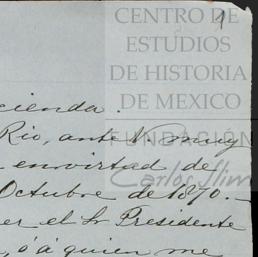 1
CENTRO DE
ESTUDIOS
DE HISTORIA
DE MEXICO
FUNDACIÓN
Carlos Slim
cienda.
Rio, ante V. muy
envirtad de
Octubre de 1870.—
er el Sr Presidente
, ó á quien me